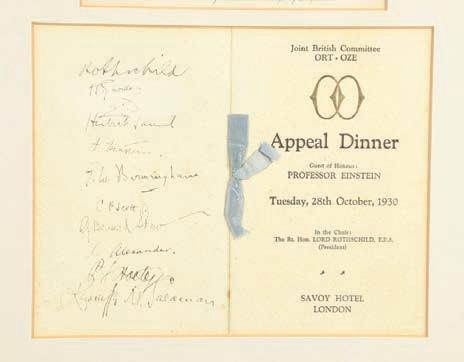 Rothschild
Herbert Samuel
A. Einstein.
E. W. Birmingham
G. Bernard Shaw
S. Alexander.
Redcliffe N. Salaman
Joint British Committee
ORT · OZE
Appeal Dinner
Guest of Honour:
PROFESSOR EINSTEIN
Tuesday, 28th October, 1930
In the Chair:
The Rt. Hon. LORD ROTHSCHILD, F.R.S.
(President)
SAVOY HOTEL
LONDON